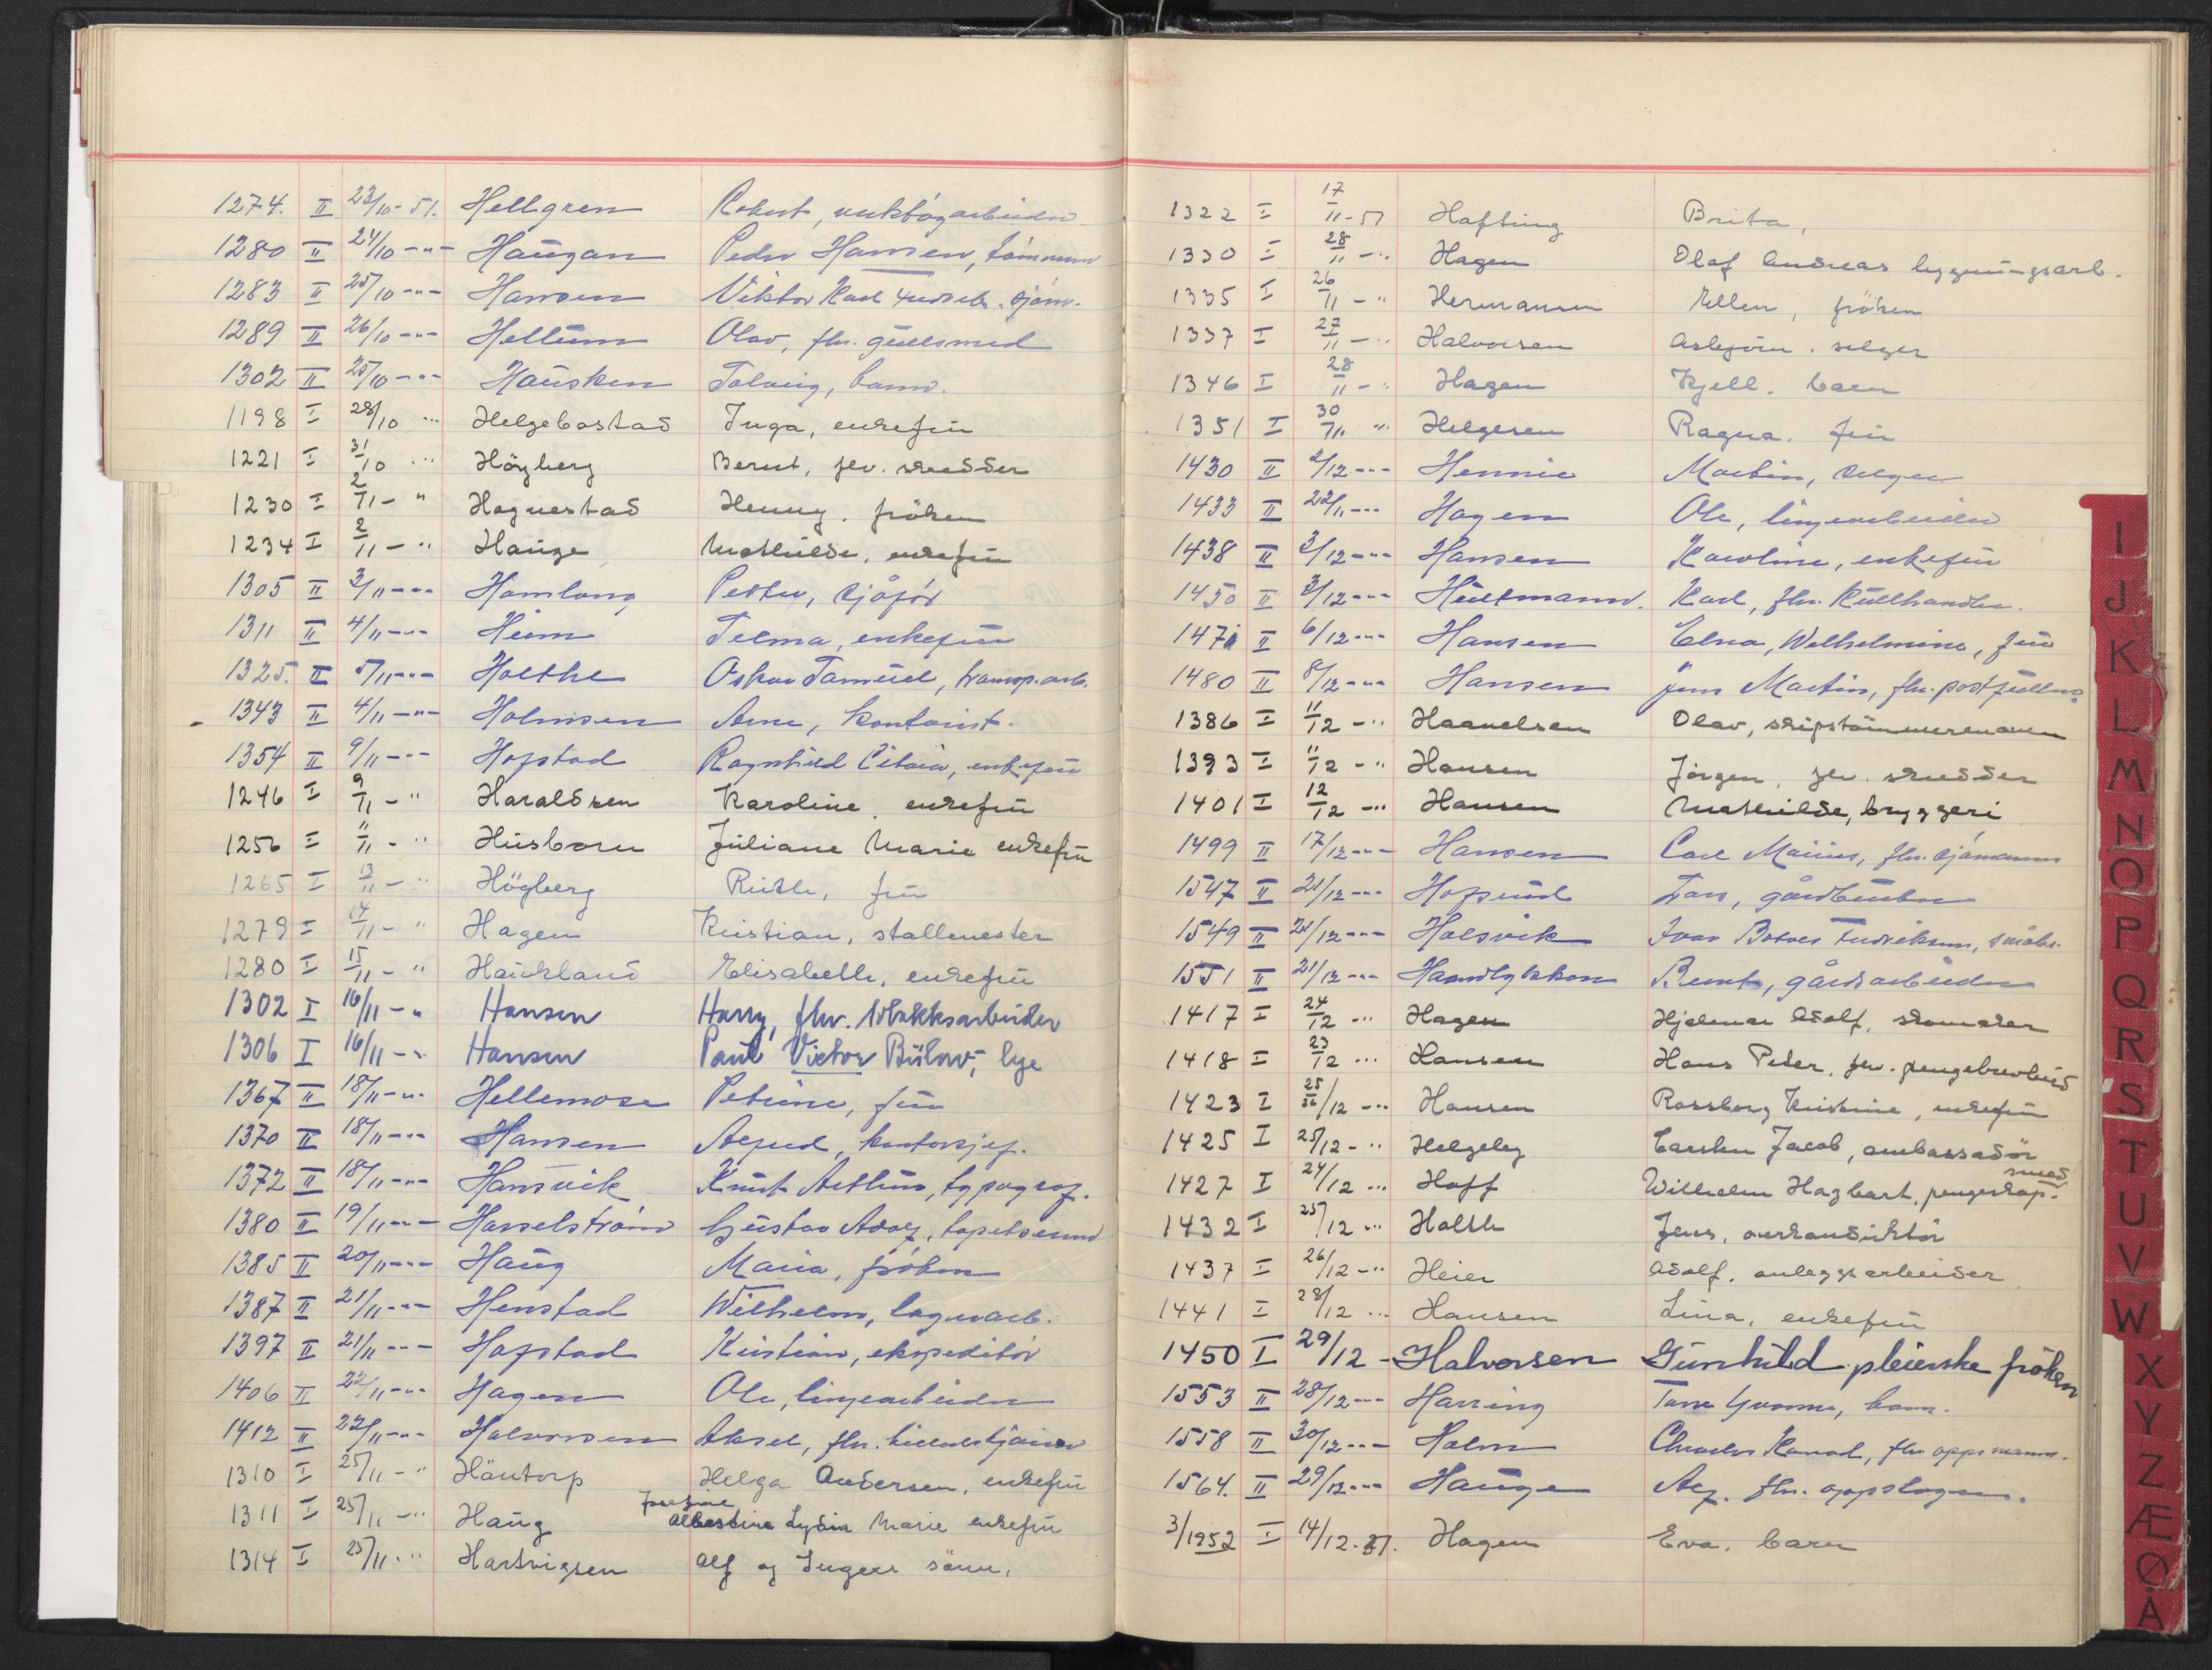 1274. II 23/10-51. Hellgren Robert, verktøyarbeider
1280 II 24/10-"- Haugan Peder Hansen, tømmerm
1283 II 25/10-"- Hansen Viktor Karl Fredrik. sjøm.
1289 II 26/10-"- Hellum Olav, fhv. gullsmed
1302 II 25/10-"- Hausken Solveig, barn.
1198 I 28/10 -"- Helgebostad Inga, enkefru
1221 I 31/10 -"- Högberg Bernt, fhv. skredder
1230 I 2/11 - " Hognestad Henny. fröken
1234 I 2/11 - " Hauge Mathilde, enkefru
1305 II 3/11-"- Hamlang Petter, sjåför
1311 II 4/11-"- Heim Telma, enkefru
1325. II 5/11-"- Holthe Oskar Samuel, transp.arb.
1343 II 4/11-"- Holmsen Arne, kontorist.
1354 II 9/11-"- Hofstad Ragnhild, enkefru
1246 I 9/11 - " Haraldsen Karoline. enkefru
1256 I 11/11 - " Husborn Juliane Marie enkefru
1265 I 13/11 - " Högberg Ruth, fru
1279 I 14/11 - " Hagen Kristian, stallmester
1280 I 15/11 - " Haukland Elisabeth, enkefru
1302 I 16/11 - " Hansen Harry, fhv. blikkarbeider
1306 I 16/11 - " Hansen Paul Victor Bülow-, lge
1367 II 18/11-"- Hellemose Petrine, fru
1370 II 18/11-"- Hansen Asmund, kontorsjef.
1372 II 18/11-"- Hansvik Knut Arthur, typograf.
1380 II 19/11-"- Hasselstrøm Gustav Adolf, tapetserer
1385 II 20/11-"- Haug Maria, frøken
1387 II 21/11-"- Henstad Wilhelm, lagerarb.
1397 II 21/11-"- Hofstad Kristian, ekspeditör
1406 II 22/11-"- Hagen Ole, linjearbeider
1412 II 22/11-"- Halvorsen Aksel, fhv.
1310 I 25/11 - " Häntorp Helga Andersen, enkefru
1311 I 25/11 - " Haug Josefine Albertine Lydia Marie enkefru
1314 I 25/11 - " Hartvigsen Alf og Ingers sönn.
1322 I 17/11-51 Hafting Brita,
1330 I 28/11 - " Hagen Olaf Andreas bygningsarb.
1335 I 26/11 - " Hermansen Ellen, fröken
1337 I 27/11 - " Halvorsen Asbjörn. selger
1346 I 28/11 - " Hagen Kjell. barn
1351 I 30/11 " Helgesen Ragna. fru
1430 II 2/12-"- Hennie Martin, selger
1433 II 22/11-"- Hagen Ole, linjearbeider
1438 II 3/12-"- Hansen Karoline, enkefru
1450 II 3/12-"- Hultmann. Karl, fhv. kullhandler.
147 II 6/12-"- Hansen Elna, Wilhelmine, fru
1480 II 8/12-"- Hansen Jens Martin, fhv. postfullm.
1386 I 11/12 - " Haavelsen Olav, skipstömmermann
1393 I 11/12 - " Hansen Jörgen, fhv. skredder
1401 I 12/12 - " Hansen Mathilde, bryggeri
1499 II 17/12-"- Hansen Carl Marius, fhv. sjømann
1547 II 21/12-"- Hofsund Lars, gårdbruker
1549 II 21/12-"- Holsvik Ivar Fredriksen, småbr.
1551 II 21/12-"- Haandlykken Bernt, gårdsarbeider
1417 I 24/12 " Hagen Hjalmar Adolf, skomaker
1418 I 23/12 " Hansen Hans Peder, fhv. pengebrevbud
1423 I 25/26/12 -" Hansen Rossborg Kristine, enkefru
1425 I 25/12 - " Helgeby Carsten Jacob, ambassadör
1427 I 24/12 " Hoff Wilhelm Hagbart, pengeskap-smed.
1432 I 25/12 " Holth Jens, auskandiktör
1437 I 26/12 -" Heier Adolf. anleggsarbeider
1441 I 28/12 " Hansen Lina, enkefru
1450 I 29/12 - Halvorsen Gunhild pleierske fröken
1553 II 28/12-"- Harring Yvonne, barn.
1558 II 30/12-"- Holm Charles Konrad, fhv. oppsmann.
1564. II 29/12-"- Hauge Alf. fhv. oppslager.
3/1952 I 14/12.51. Hagen Eva. barn
I
J
K
L
M
N
O
P
Q
R
S
T
U
V
W
X
Y
Z
Æ
Ø
Å